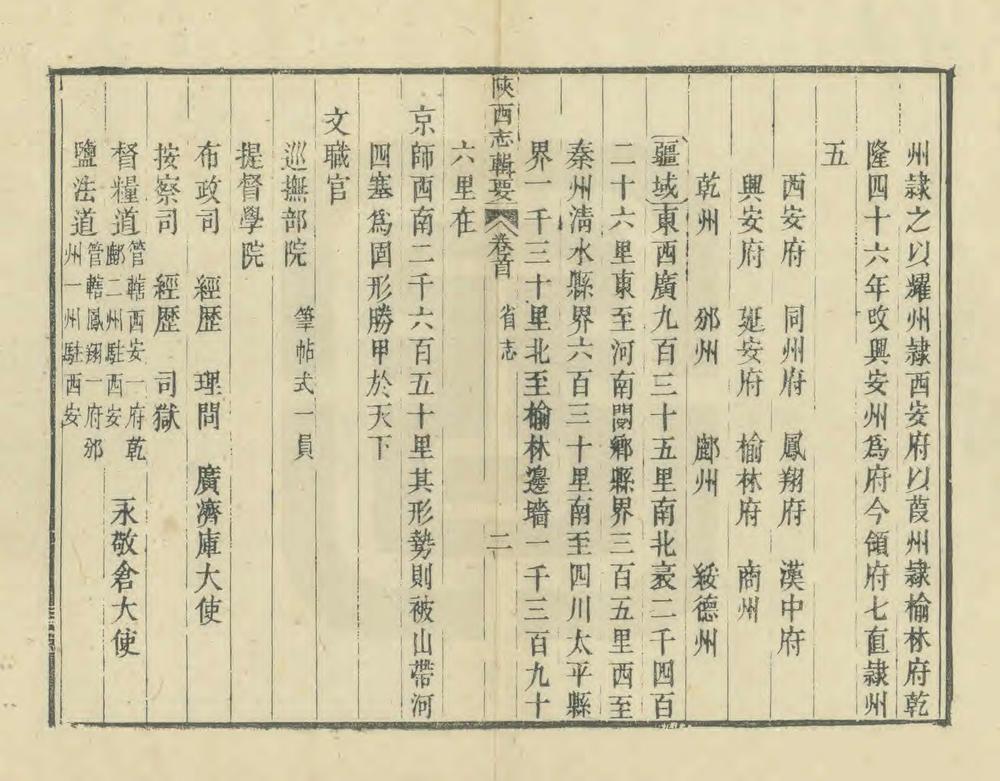 州隸之以耀州隸西安府以葭州隸榆林府乾
隆四十六年攺興安州爲府今領府七直隸州
五
西安府 同州府 鳳翔府 漢中府
興安府 延安府 榆林府 商州
乾州 邠州 鄜州 綏德州
疆域東西廣九百三十五里南北袤二千四百
二十六里東至河南閿鄉縣界三百五里西至
秦州清水縣界六百三十里南至四川太平縣
界一千三十里北至榆林邊墻一千三百九十
六里在
陝西志輯要 卷首 省志 二
京師西南二千六百五十里其形勢則被山帶河
四塞爲固形勝甲於天下
文職官
巡撫部院 筆帖式一員
提督學院
布政司 經歷 理問 廣濟庫大使
按察司 經歷 司獄
督糧道 管轄西安一府乾鄜二州駐西安 永敬倉大使
鹽法道 管轄鳳翔一府邠州一州駐西安